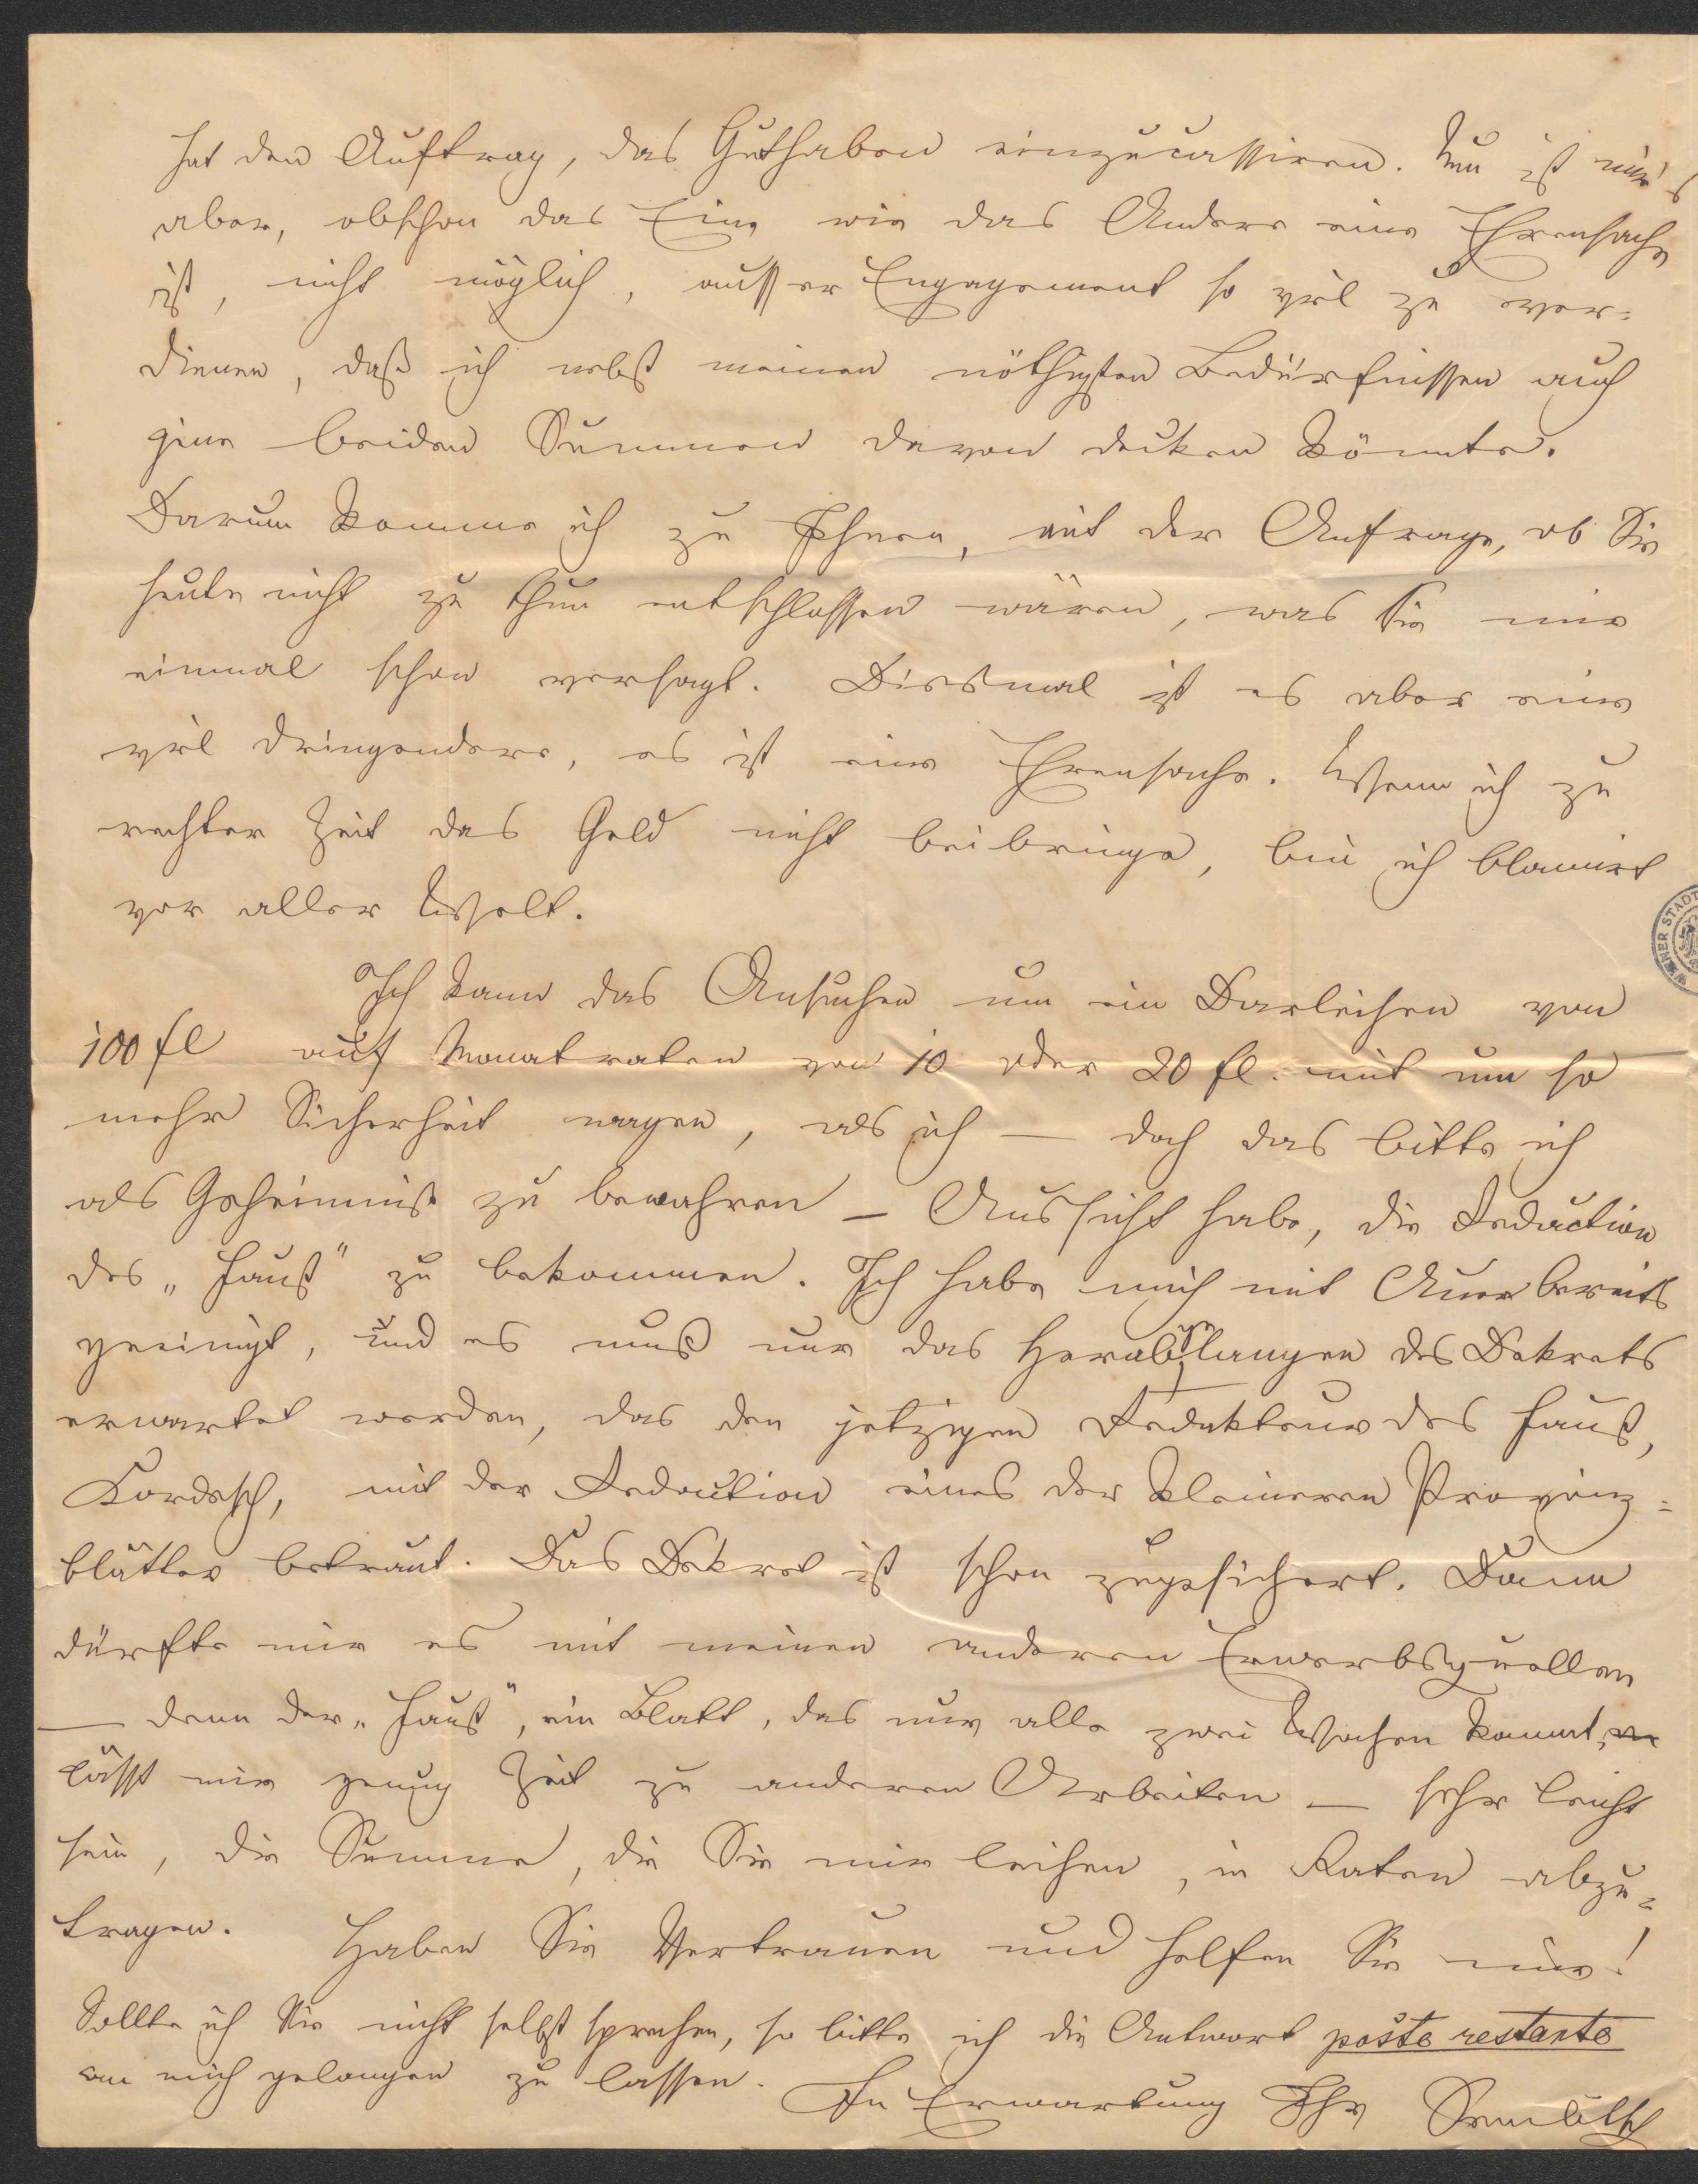 hat den Auftrag, das Guthaben einzucassiren. Nun ist mir's
aber, obschon das Eine wie das Andere eine Ehrensache
ist, nicht möglich, ausser Engagement so viel zu ver=
dienen, daß ich nebst meinen nöthigsten Bedürfnissen auch
jene beiden Summen davon decken könnte.
Darum komme ich zu Ihnen, mit der Anfrage, ob Sie
heute nicht zu thun entschlossen wären, was Sie mir
einmal schon versagt. Diesmal ist es aber eine
viel dringendere, es ist eine Ehrensache. Wenn ich zu
rechter Zeit das Geld nicht beibringe, bin ich blamirt
vor aller Welt.
Ich kann das Ansuchen um ein Darleihen von
100 fl auf Monatraten von 10 oder 20 fl. mit um so
mehr Sicherheit wagen, als ich — doch das bitte ich
als Geheimniß zu bewahren — Aussicht habe, die Redaction
des „Faust" zu bekommen. Ich habe mich mit Auer bereits
geeinigt, und es muß nur das Herabgelangen des Dekrets
erwartet werden, das den jetzigen Redakteur des Faust,
Kordesch, mit der Redaction eines der kleineren Provinz=
blätter betraut. Das Dekret ist schon zugesichert. Dann
dürfte mir es mit meinen anderen Erwerbsquellen
— denn der „Faust", ein Blatt, das nur alle zwei Wochen kommt,
lässt mir genug Zeit zu anderen Arbeiten — sehr leicht
sein, die Summe, die Sie mir leihen, in Raten abzu=
tragen. Haben Sie Vertrauen und helfen Sie mir!
Sollte ich Sie nicht selbst sprechen, so bitte ich die Antwort poste restante
an mich gelangen zu lassen. In Erwartung Ihr
WIENER STADT